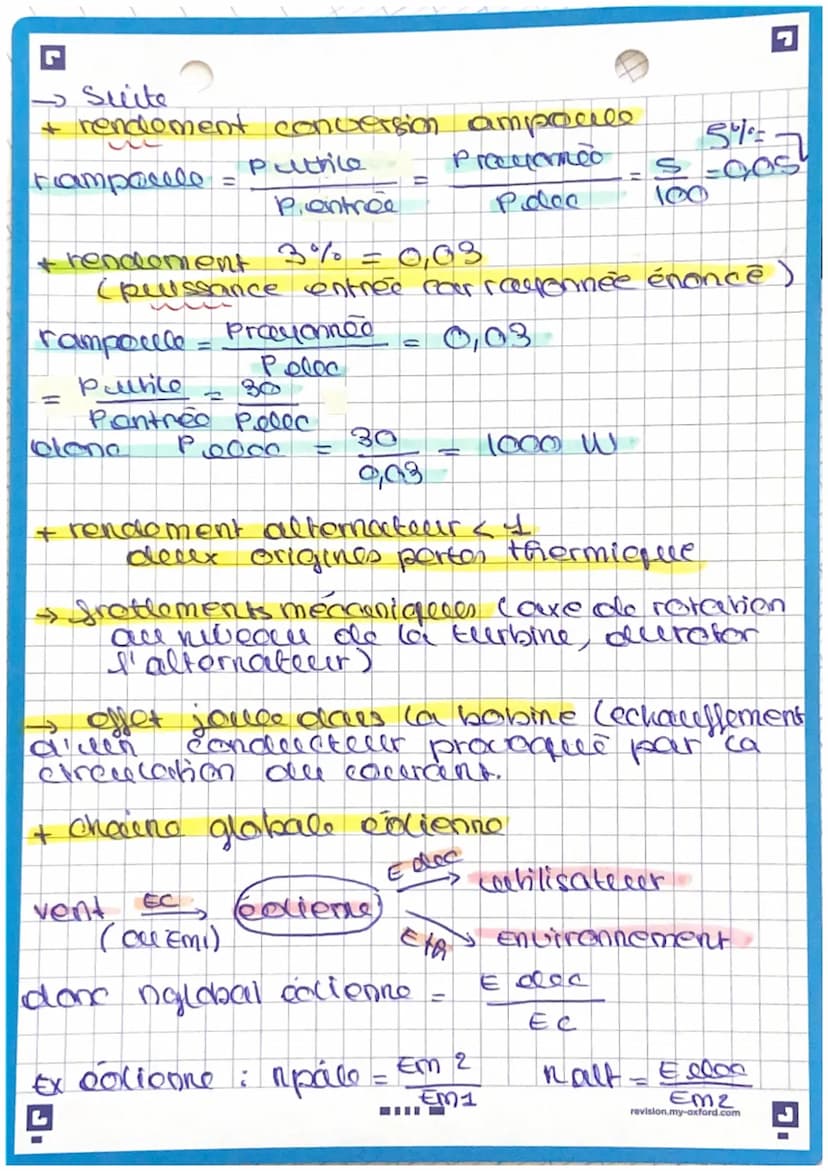 → Suite
+ rendement conversion ampoule
rampoule = P utile / P.entrée = P rayonnée / P.elec = 5 / 100 = 0,05 5% =
+ rendement 3% = 0,03
(puissance entrée car rayonnée énoncé)
rampoule = P rayonnée / P elec = 0,03
= P utile / P entrée = 30 / P.elec
donc P elec = 30 / 0,03 = 1000 W
+ rendement alternateur < 1
deux origines pertes thermique
→ frottements mécaniques (axe de rotation
au niveau de la turbine, du rotor
l'alternateur)
→ effet joule dans la bobine (echauffement
d'un conducteur provoqué par la
circulation du courant.
+ chaine globale éolienne
vent EC → éolienne E elec → utilisateur
(ou Em1) Eth → environnement
donc nglobal éolienne = E elec / EC
Ex éolienne : npâle = Em 2 / Em1 nalt = E elec / Em2
revision.my-oxford.com